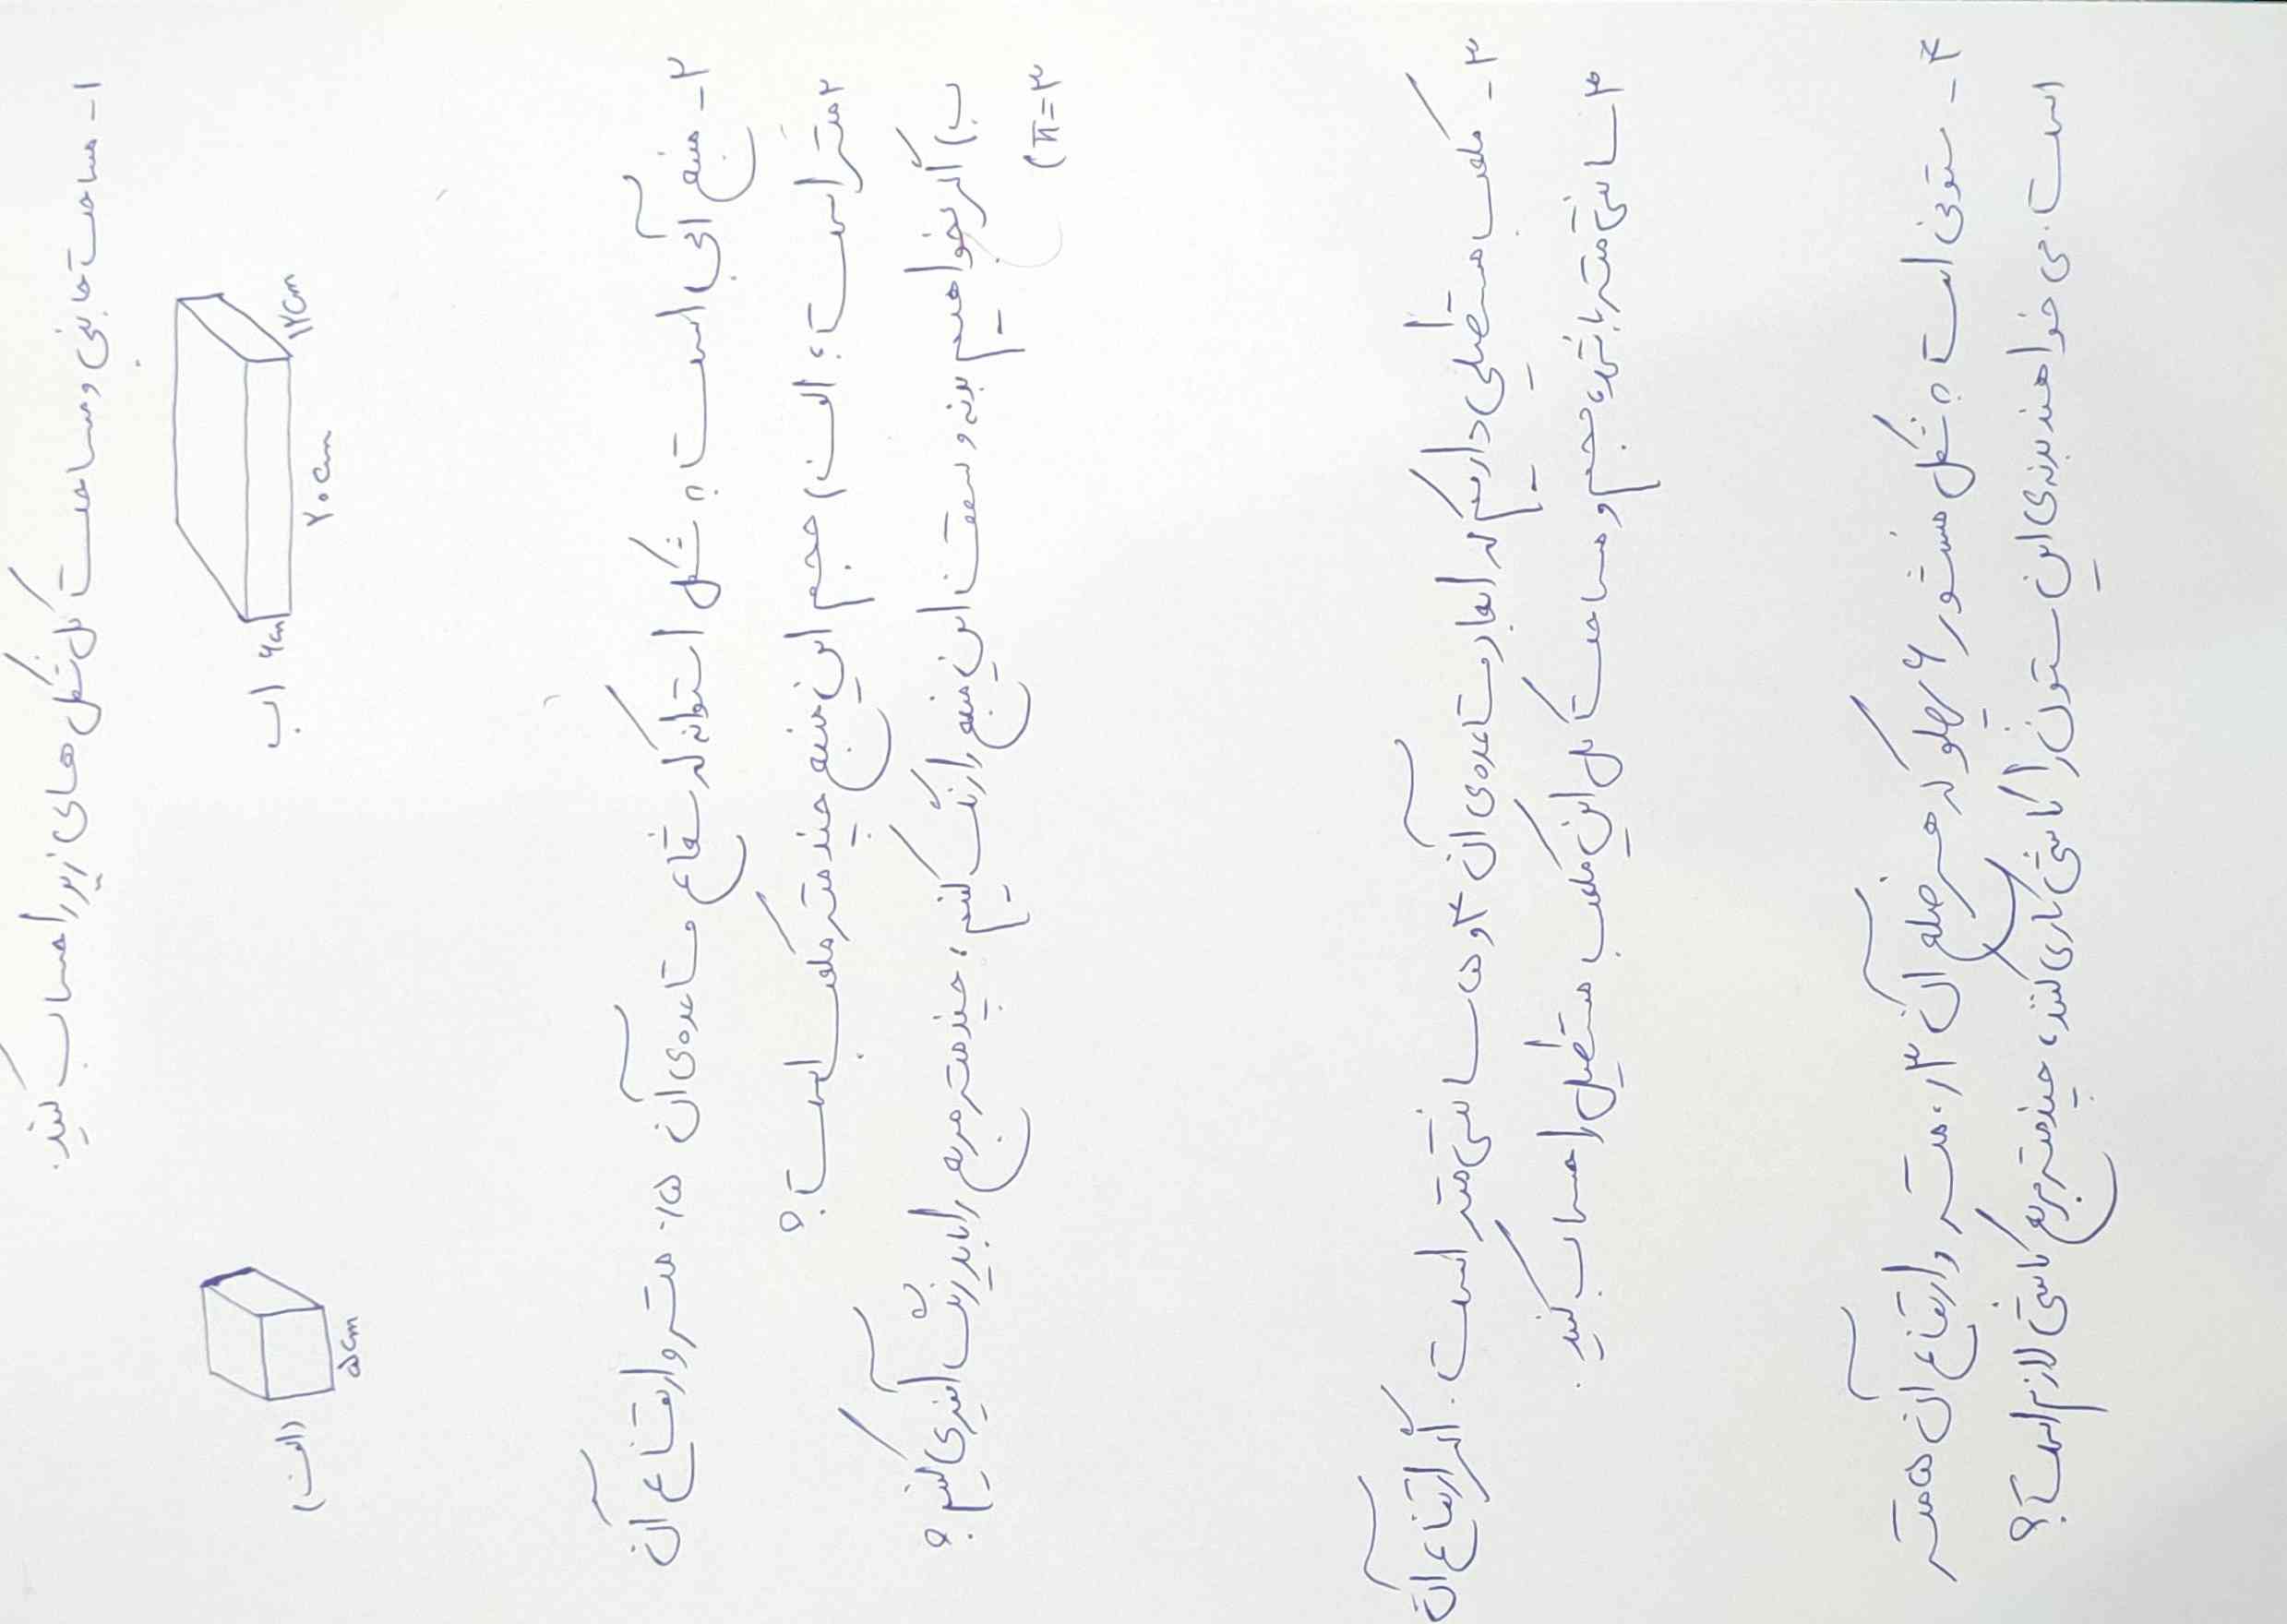 ۱- مساحت جانبی و مساحت کل شکل های زیر را حساب کنید.
الف)
۵cm
ب)
۶cm
۲۰cm
۱۲cm
۲- منبع آبی است به شکل استوانه که شعاع قاعده‌ی آن ۰/۵ متر و ارتفاع آن
۲ متر است؛ الف) حجم این منبع چند متر مکعب است؟
ب) اگر بخواهیم بدنه و سقف این منبع را رنگ کنیم، چند متر مربع را باید رنگ آمیزی کنیم؟
(π=۳
۳- مکعب مستطیلی داریم که ابعاد قاعده‌ی آن ۴ و ۵ سانتی متر است. اگر ارتفاع آن
۳ سانتی متر باشد، حجم و مساحت کل این مکعب مستطیل را حساب کنید.
۴- ستونی است به شکل منشور ۶ پهلو که هر ضلع آن ۰/۳ متر و ارتفاع آن ۵ متر
است. می خواهند بدنه‌ی این ستون را کاشی کاری کنند، چند متر مربع کاشی لازم است؟